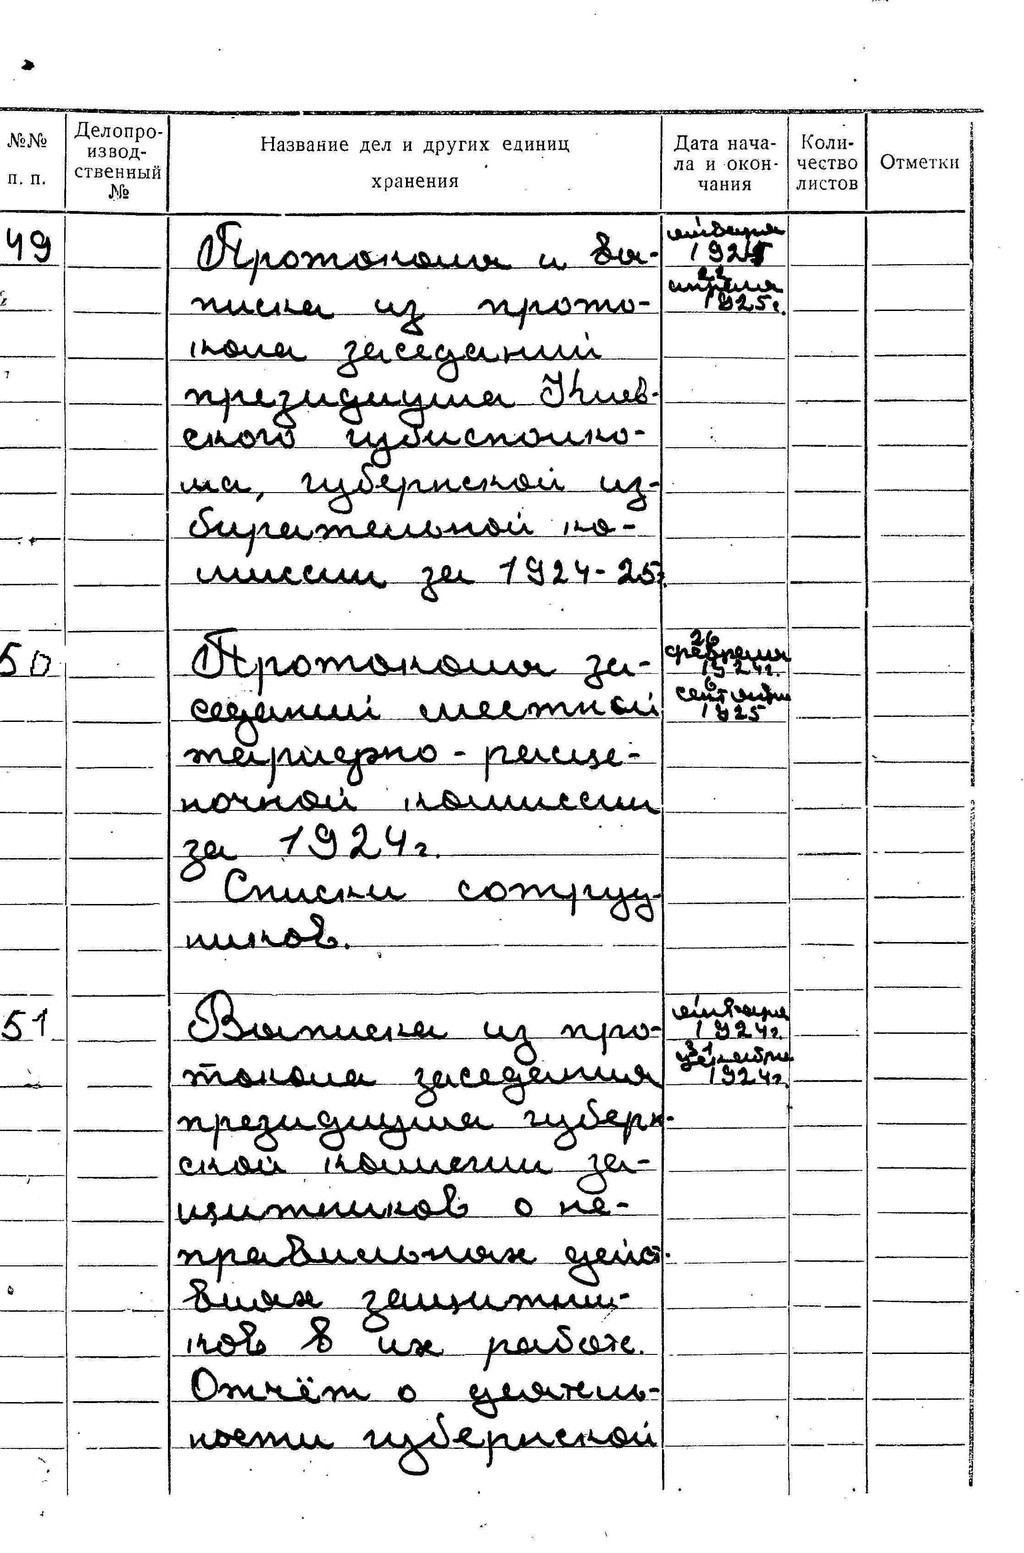 №№ п. п.
Делопро-
извод-
ственный
№
Название дел и других единиц
хранения
Дата нача-
ла и окон-
чания
Коли-
чество
листов
Отметки
49
Протокола и вы-
писка из прото-
кола заседаний
президиума Киев-
ского губисполко-
ма, губернской из-
бирательной ко-
миссии за 1924-25г.
января
1924
22
апреля
1925г.
50
Протокола за-
седаний местной
тарифно-расце-
ночной комиссии
за 1924г.
Списки сотруд-
ников.
26
февраля
1924г.
6
сентября
1925
51
Выписка из про-
токола заседания
президиума губерн-
ской коллегии за-
щитников о не-
правильных дейст-
виях защитни-
ков в их работе.
Отчёт о деятель-
ности губернской
января
1924г.
31
декабря
1924г.